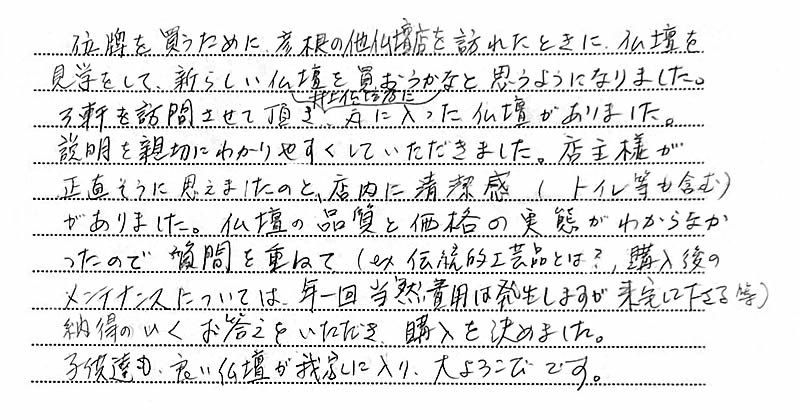 位牌を買うために、彦根の他仏壇店を訪れたときに、仏壇を
見学をして、新らしい仏壇を買おうかなと思うようになりました。
井上仏壇店に
3軒を訪問させて頂き、気に入った仏壇がありました。
説明を親切にわかりやすくしていただきました。店主様が
正直そうに思えましたのと、店内に清潔感（トイレ等も含む）
がありました。仏壇の品質と価格の実態がわからなか
ったので質問を重ねて（ex 伝統的工芸品とは？，購入後の
メンテナンスについては、年一回当然費用は発生しますが来宅して下さる等）
納得のいくお答えをいただき、購入を決めました。
子供達も、良い仏壇が我家に入り、大よろこびです。